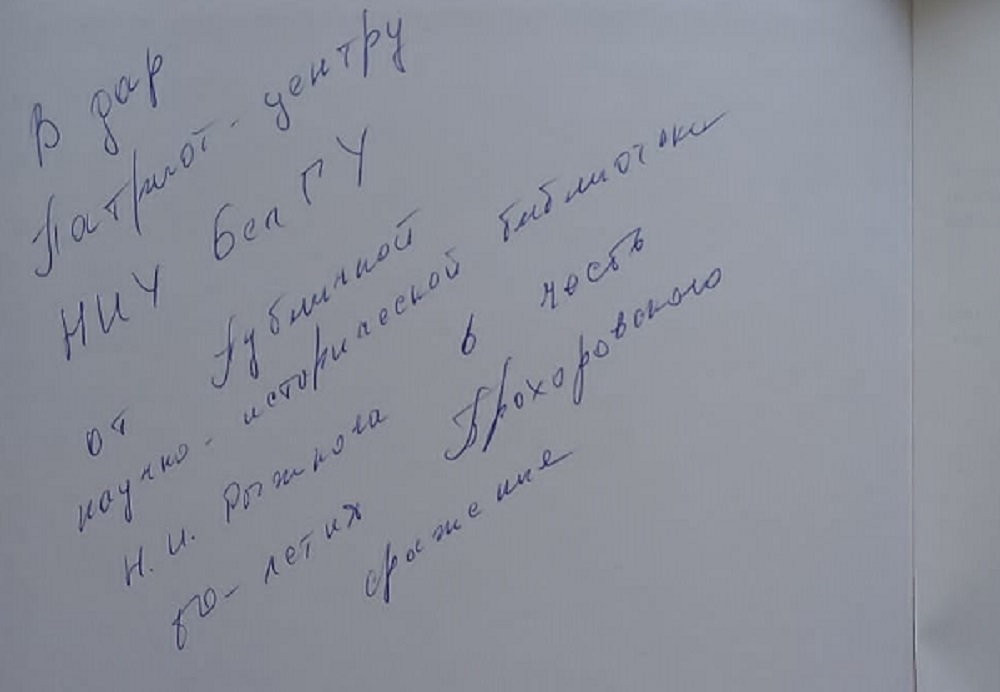 В дар
Патриот-центру
НИУ БелГУ
от публичной
научно-исторической библиотеки
Н.И. Рыжкова в честь
80-летия Прохоровского
сражения